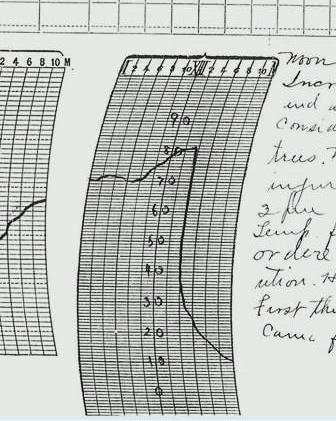 2 4 6 8 10 M
2 4 6 8 10 XII 2 4 6 8 10 M
90
80
70
60
50
40
30
20
10
0
Noon
Incr
and
Consid
trees.
injur
2 pm
Temp
or dere
ution. H
First thi
Came f